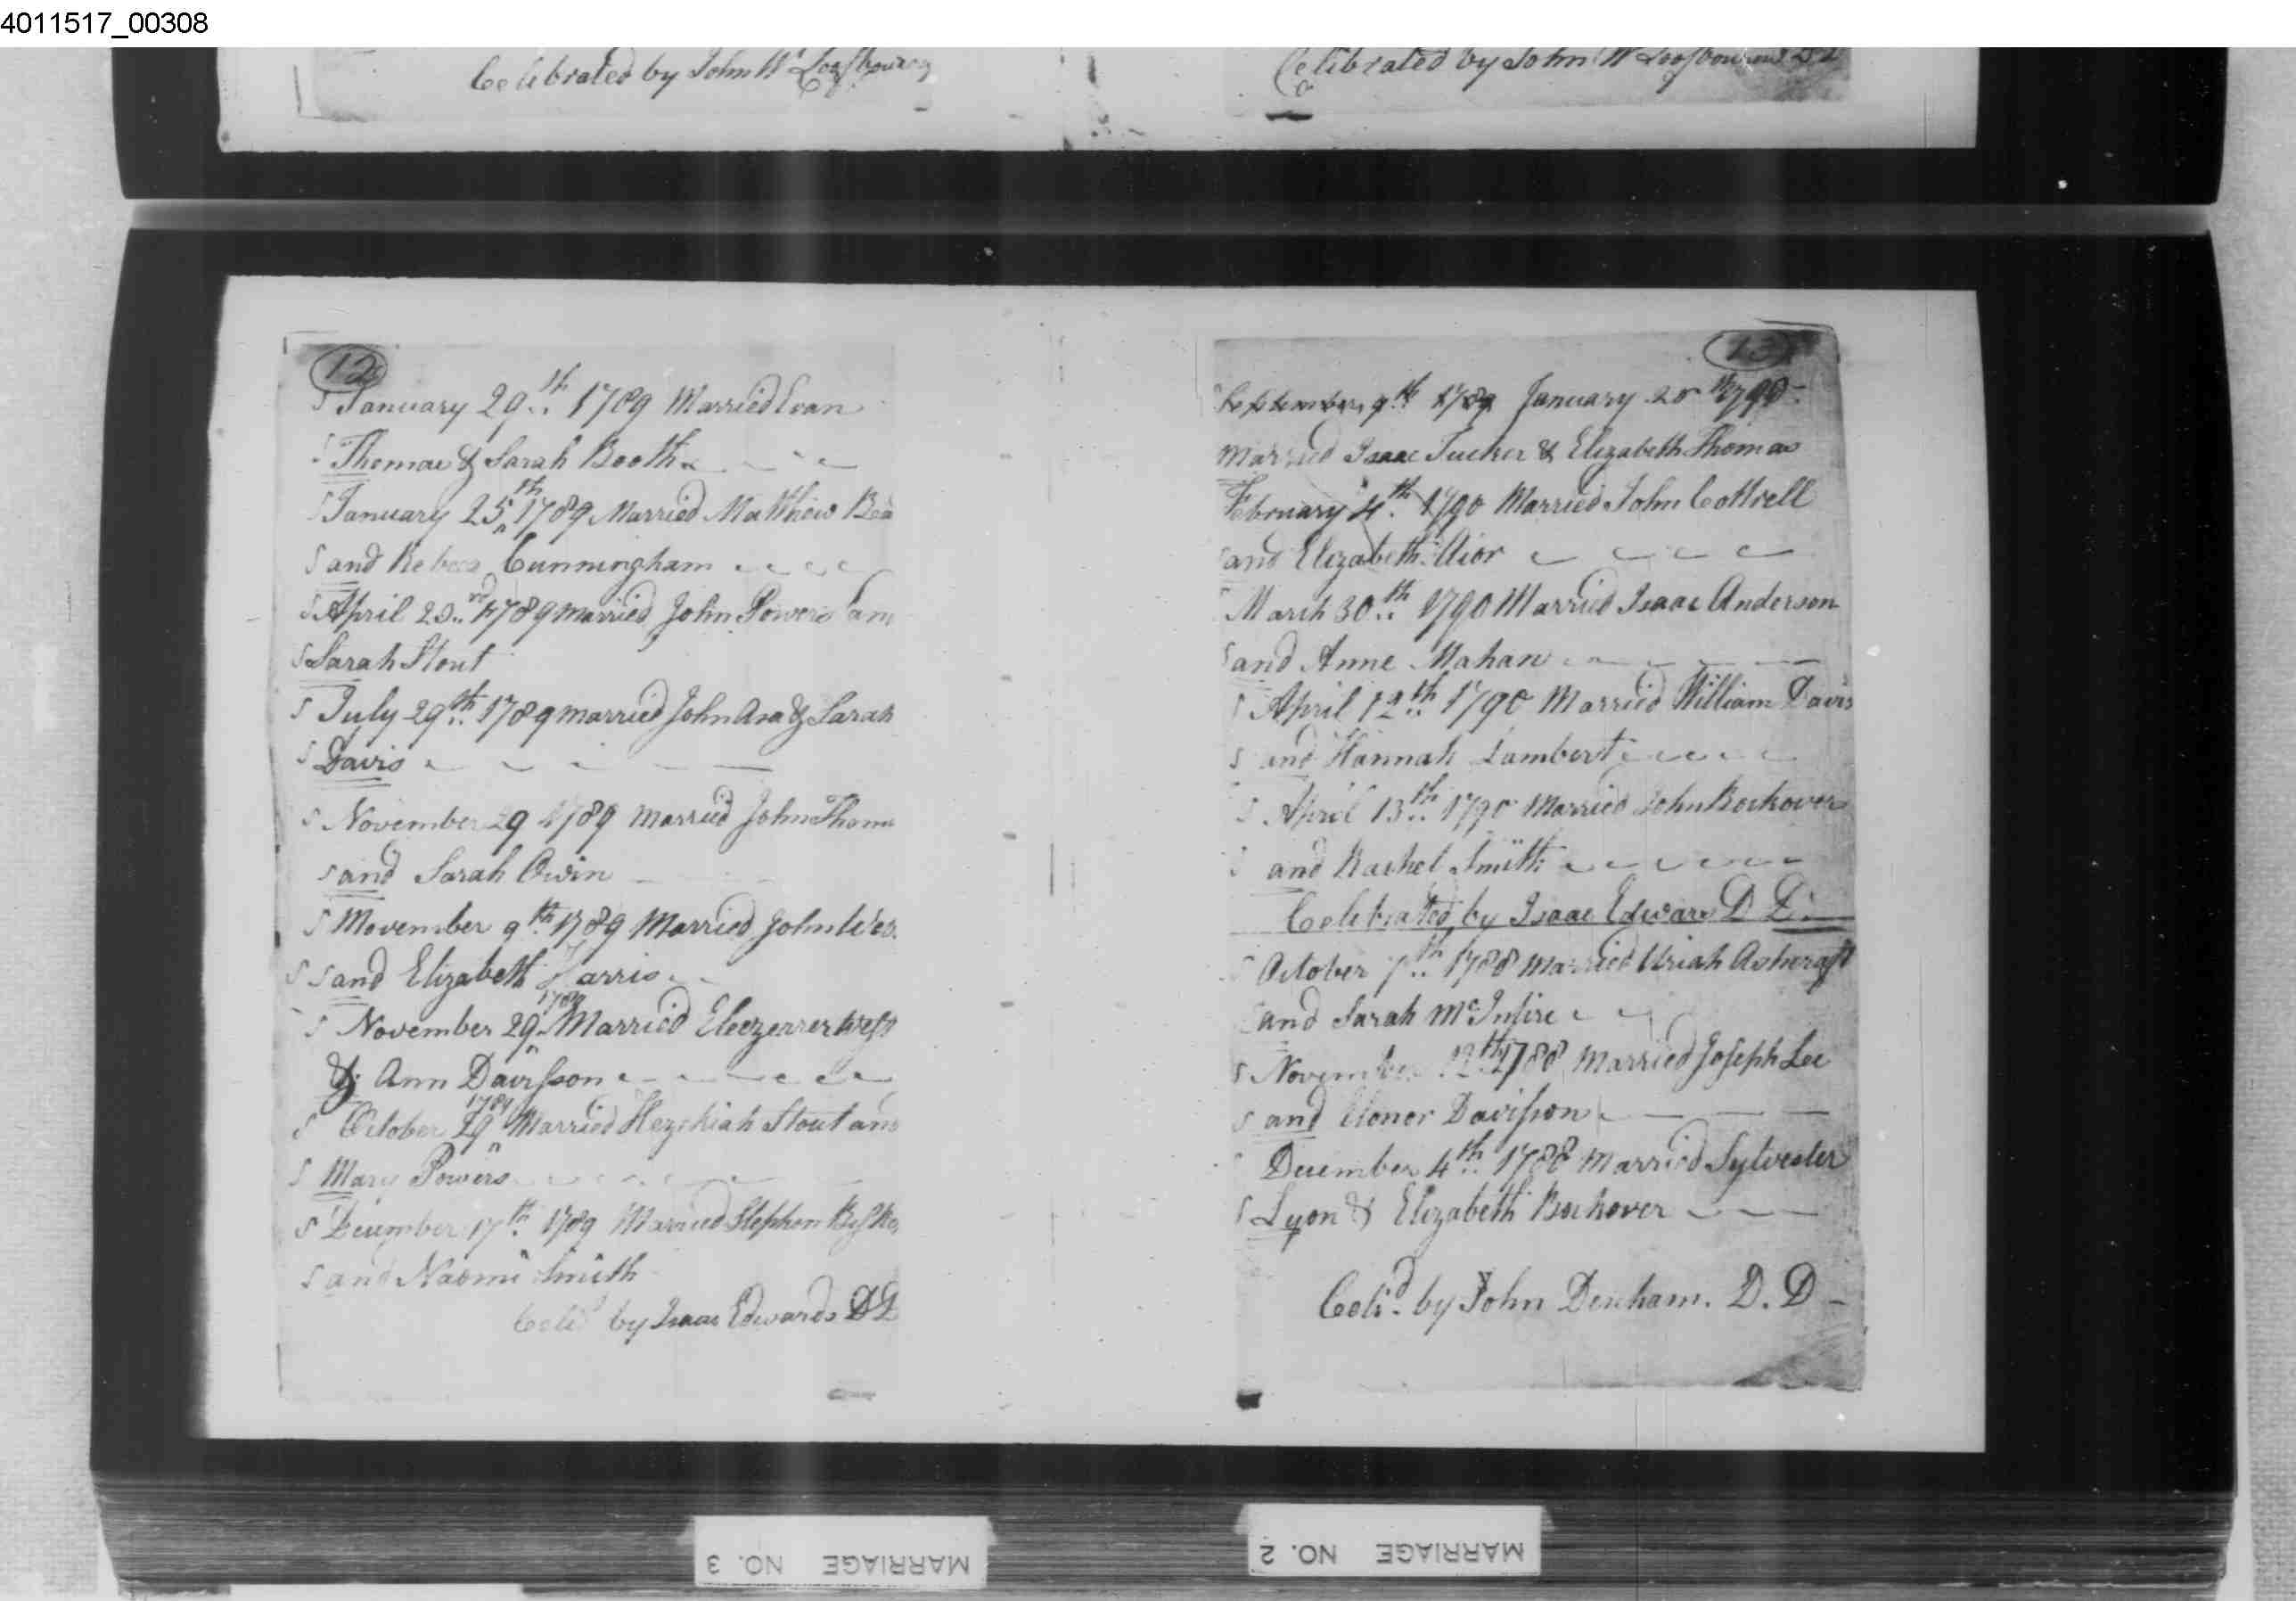 4011517_00308
Celebrated by John W Loofbourrow
Celebrated by John W Loofbourrow D D
12
January 29th 1789 Married Evan
Thomas & Sarah Booth
January 25th 1789 Married Matthew Bea
and Rebeca Cunningham
April 23rd 1789 married John Powers an
Sarah Stout
July 29th 1789 married John Asa & Sarah
Davis
November 29 1789 married John Thom
and Sarah Owin
Movember 9th 1789 Married John Wes
and Elizabeth Harris
1789
November 29 Married Eleezerrer West
& Ann Davisson
1789
October 29 Married Hezekiah Stout and
Mary Powers
December 17th 1789 Married Stephen
and Naomi Smith
Celid by Isaac Edwards D D
13
September 9th 1789 January 20th 1790
married Isaac Tucker & Elizabeth Thomas
February 4th 1790 Married John Cottrell
and Elizabeth
March 30th 1790 Married Isaac Anderson
and Anne Mahan
April 12th 1790 Married William Davis
and Hannah Lambert
April 13th 1790 Married John Bockover
and Rachel Smith
Celebrated by Isaac Edwards D D
October 7th 1788 married Uriah Ashcraft
and Sarah McIntire
November 12th 1788 Married Joseph Lee
and Elonor Davisson
December 4th 1788 Married Sylvester
Lyon & Elizabeth Bockover
Celid by John Denham. D. D
MARRIAGE NO. 3
MARRIAGE NO. 2